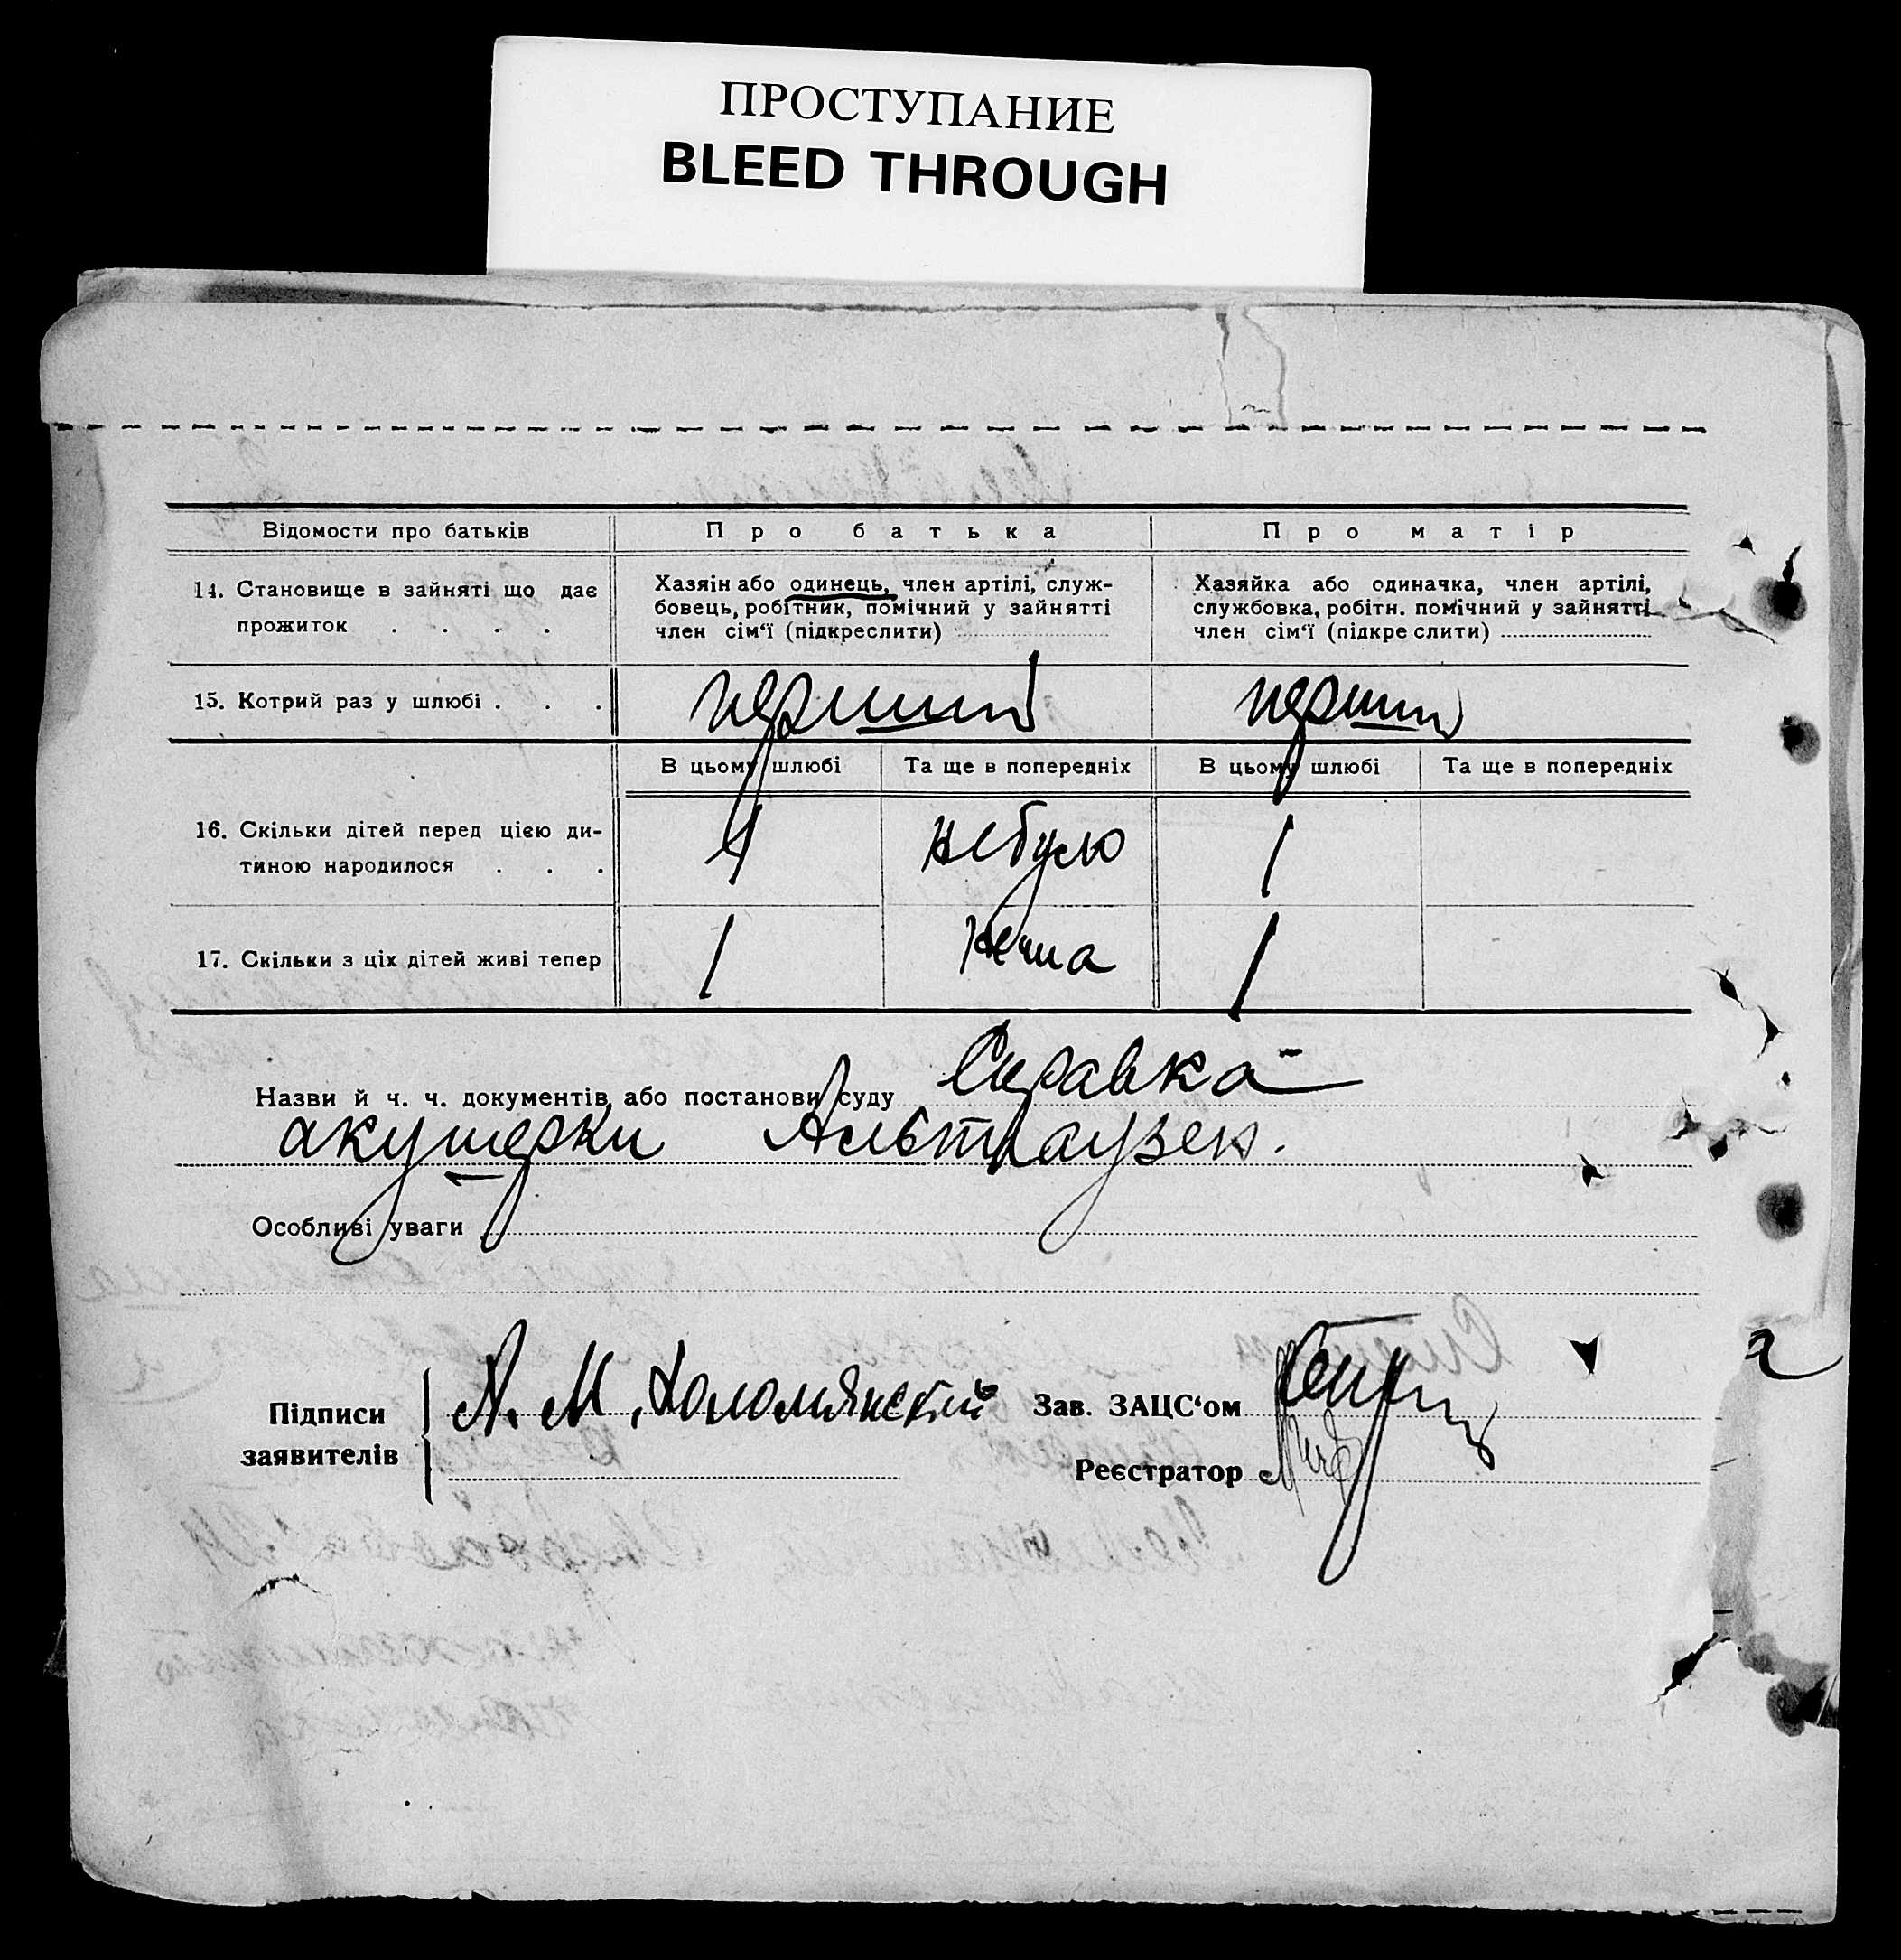 ПРОСТУПАНИЕ
BLEED THROUGH
Відомости про батьків Про батька Про матір
14. Становище в зайняті що дає прожиток . . . .
Хазяін або одинець, член артілі, служ-
бовець, робітник, помічний у зайнятті
член сім‘ї (підкреслити)
Хазяйка або одиначка, член артілі,
службовка, робітн. помічний у зайнятті
член сім‘ї (підкреслити)
15. Котрий раз у шлюбі . . . перший перший
В цьому шлюбі Та ще в попередніх В цьому шлюбі Та ще в попередніх
16. Скільки дітей перед цією ди-
тиною народилося . . . 1 не було 1
17. Скільки з ціх дітей живі тепер 1 нема 1
Назви й ч. ч. документів або постанови суду Справка
акушерки Альтгаузен.
Особливі уваги
Підписи
заявителів
А. М. Коломиянский
Зав. ЗАЦС‘ом
Реєстратор